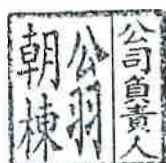 公司負責人
公羽
朝棟